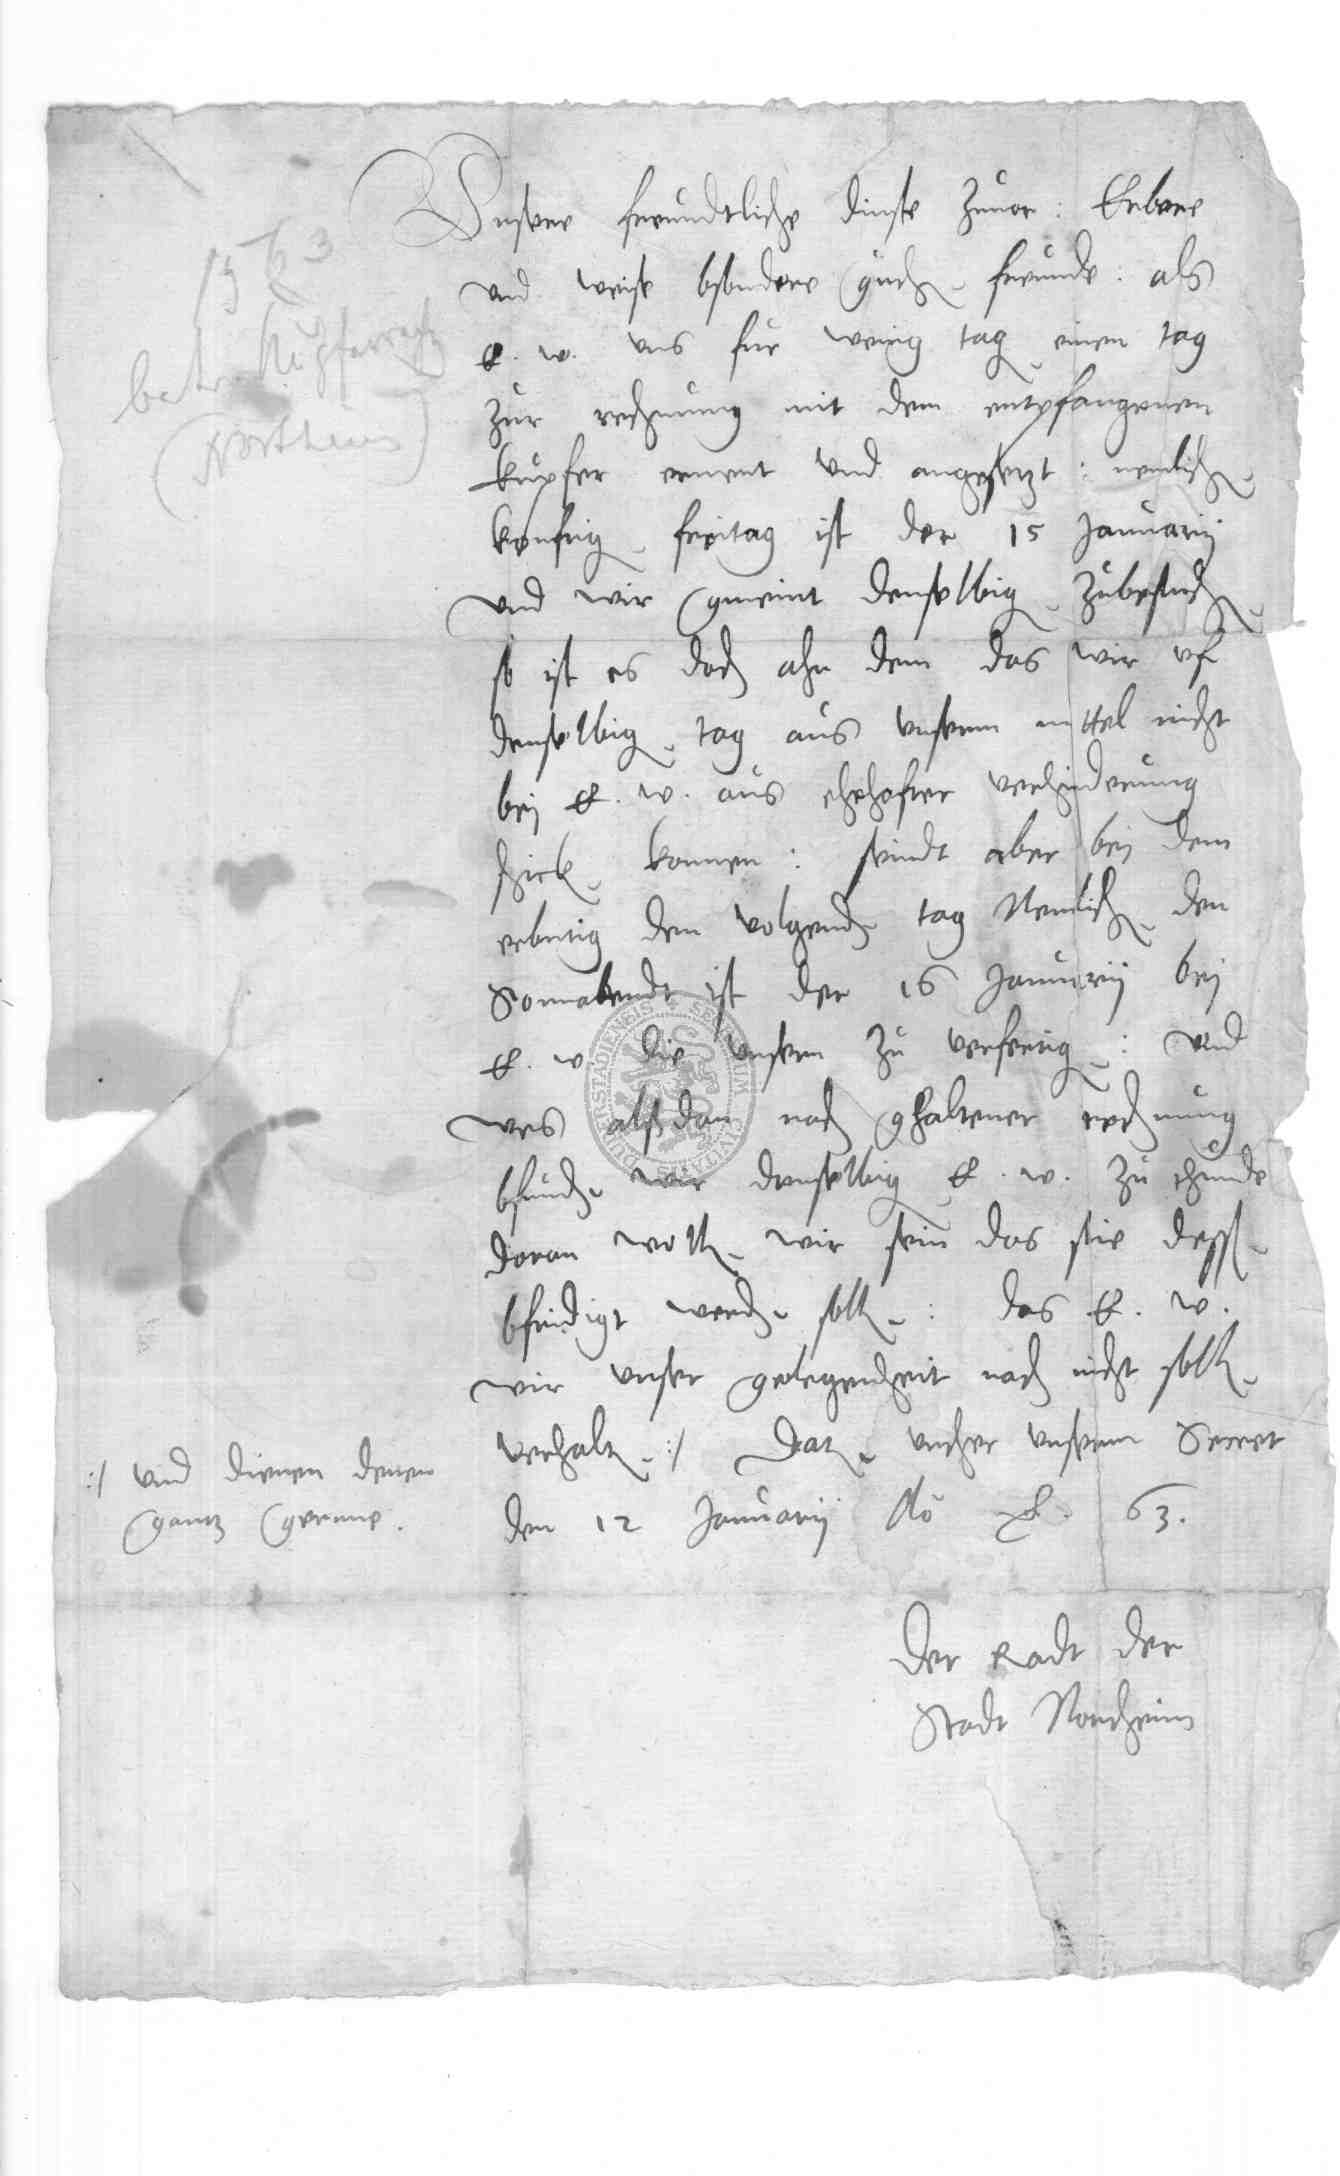 1563
betr. Kupfer
(Northeim)
Unsere freundtliche dinste zuuor: Erbare
vnd weise bsondere gude freunde: als
E. w. vns fur wenig tag einen tag
zur rechnung mit dem entpfangenen
kupfer ernent vnd angesetzt: nemlich
konftig freitag ist der 15 Januarij
vnd wir gmeint denselbig zubesuch
so ist es doch ahn dem das wir vf
denselbig tag aus vnserm mittel nicht
bei E. w. aus ehehafter verhinderung
schick konnen: seindt aber bei dem
erbutig den volgend tag Nemlich den
Sonnabendt ist der 16 Januarij bei
E. w. die vnsern zu verfertig: vnd
wes alßdan nach ghaltener rechnung
bfund wir denselbig E. w. zu
doran woll wir sein das sie dess
bfridigt werd soll: das E. w.
wir vnser gelegenheit nach nicht soll
verhalt :/ Dat vnther vnserm Secret
den 12 Januarij Ao 63.
:/ vnd dienen denen
gantz gerne.
Der Radt der
Stadt Northeim
SECRETUM CIVITATIS DUDERSTADIENSIS